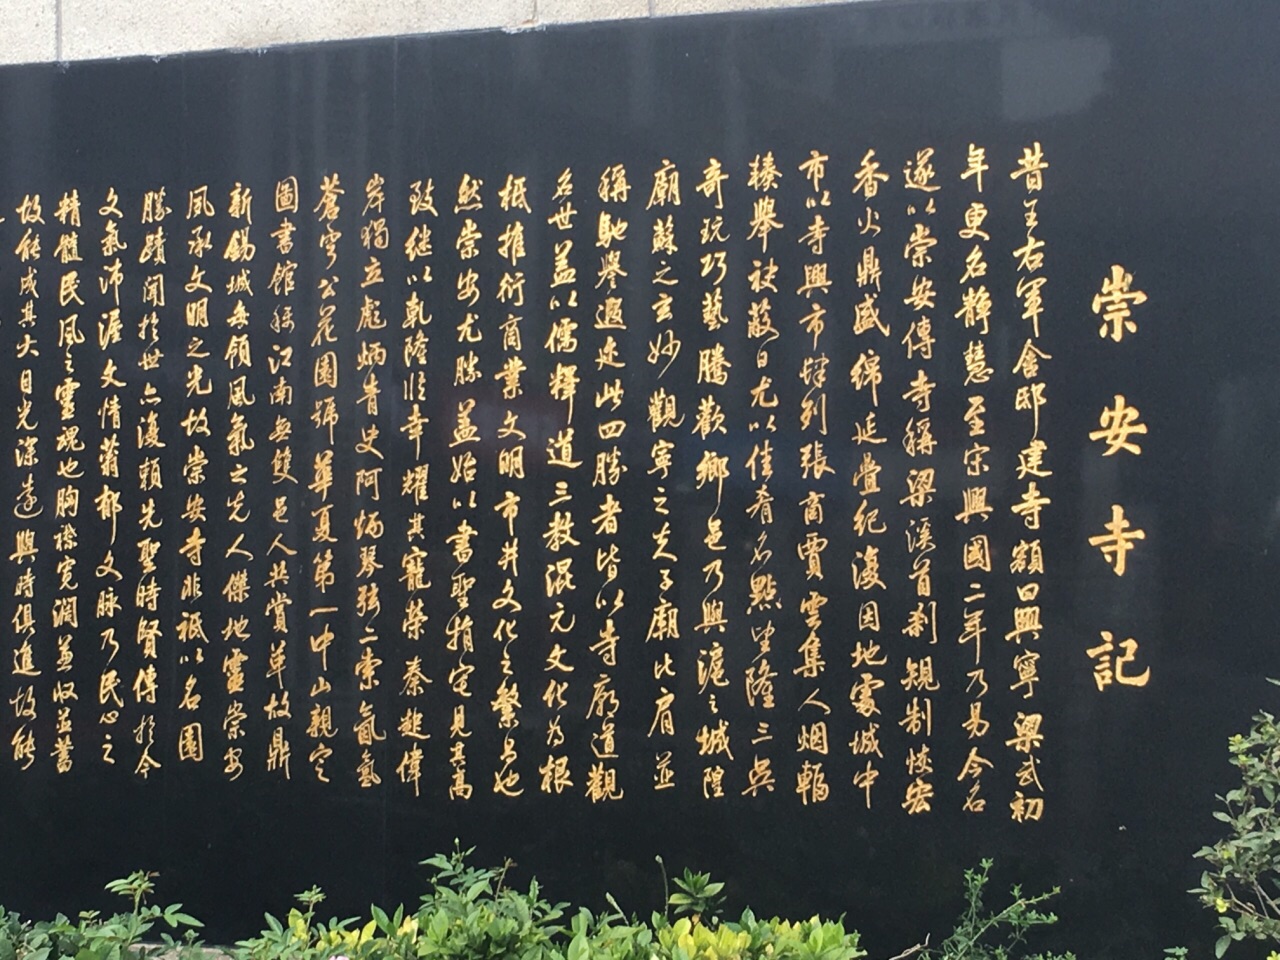 崇安寺記
昔王右軍舍邸建寺額曰興寧梁武初
年更名靜慧至宋興國二年乃易今名
遂以崇安傳寺稱梁溪首刹規制恢宏
香火鼎盛綿延疊紀復因地處城中
市以寺興市肆列張商賈雲集人烟輻
輳舉袂蔽日尤以佳肴名點譽隆三吳
奇玩巧藝騰歡鄉邑乃與滬之城隍
廟蘇之玄妙觀寧之夫子廟比肩並
稱馳譽遐迩此四勝者皆以寺廟道觀
名世蓋以儒釋道三教混元文化為根
柢推衍商業文明市井文化之繁昌也
然崇安尤勝蓋始以書聖捐宅見其高
致继以乾隆临幸耀其寵榮秦起偉
岸獨立彪炳青史阿炳琴弦二索氤氲
蒼穹公花園號華夏第一中山親定
圖書館稱江南無雙邑人共賞革故鼎
新錫城每領風氣之先人傑地靈崇安
夙承文明之光故崇安寺非祗以名園
勝蹟聞於世亦復賴先聖時賢傳於今
文氣沛渥文情蓊郁文脉乃民心之
精髓民風之靈魂也胸襟寬濶兼收並蓄
故能成其大目光深遠與時俱進故能